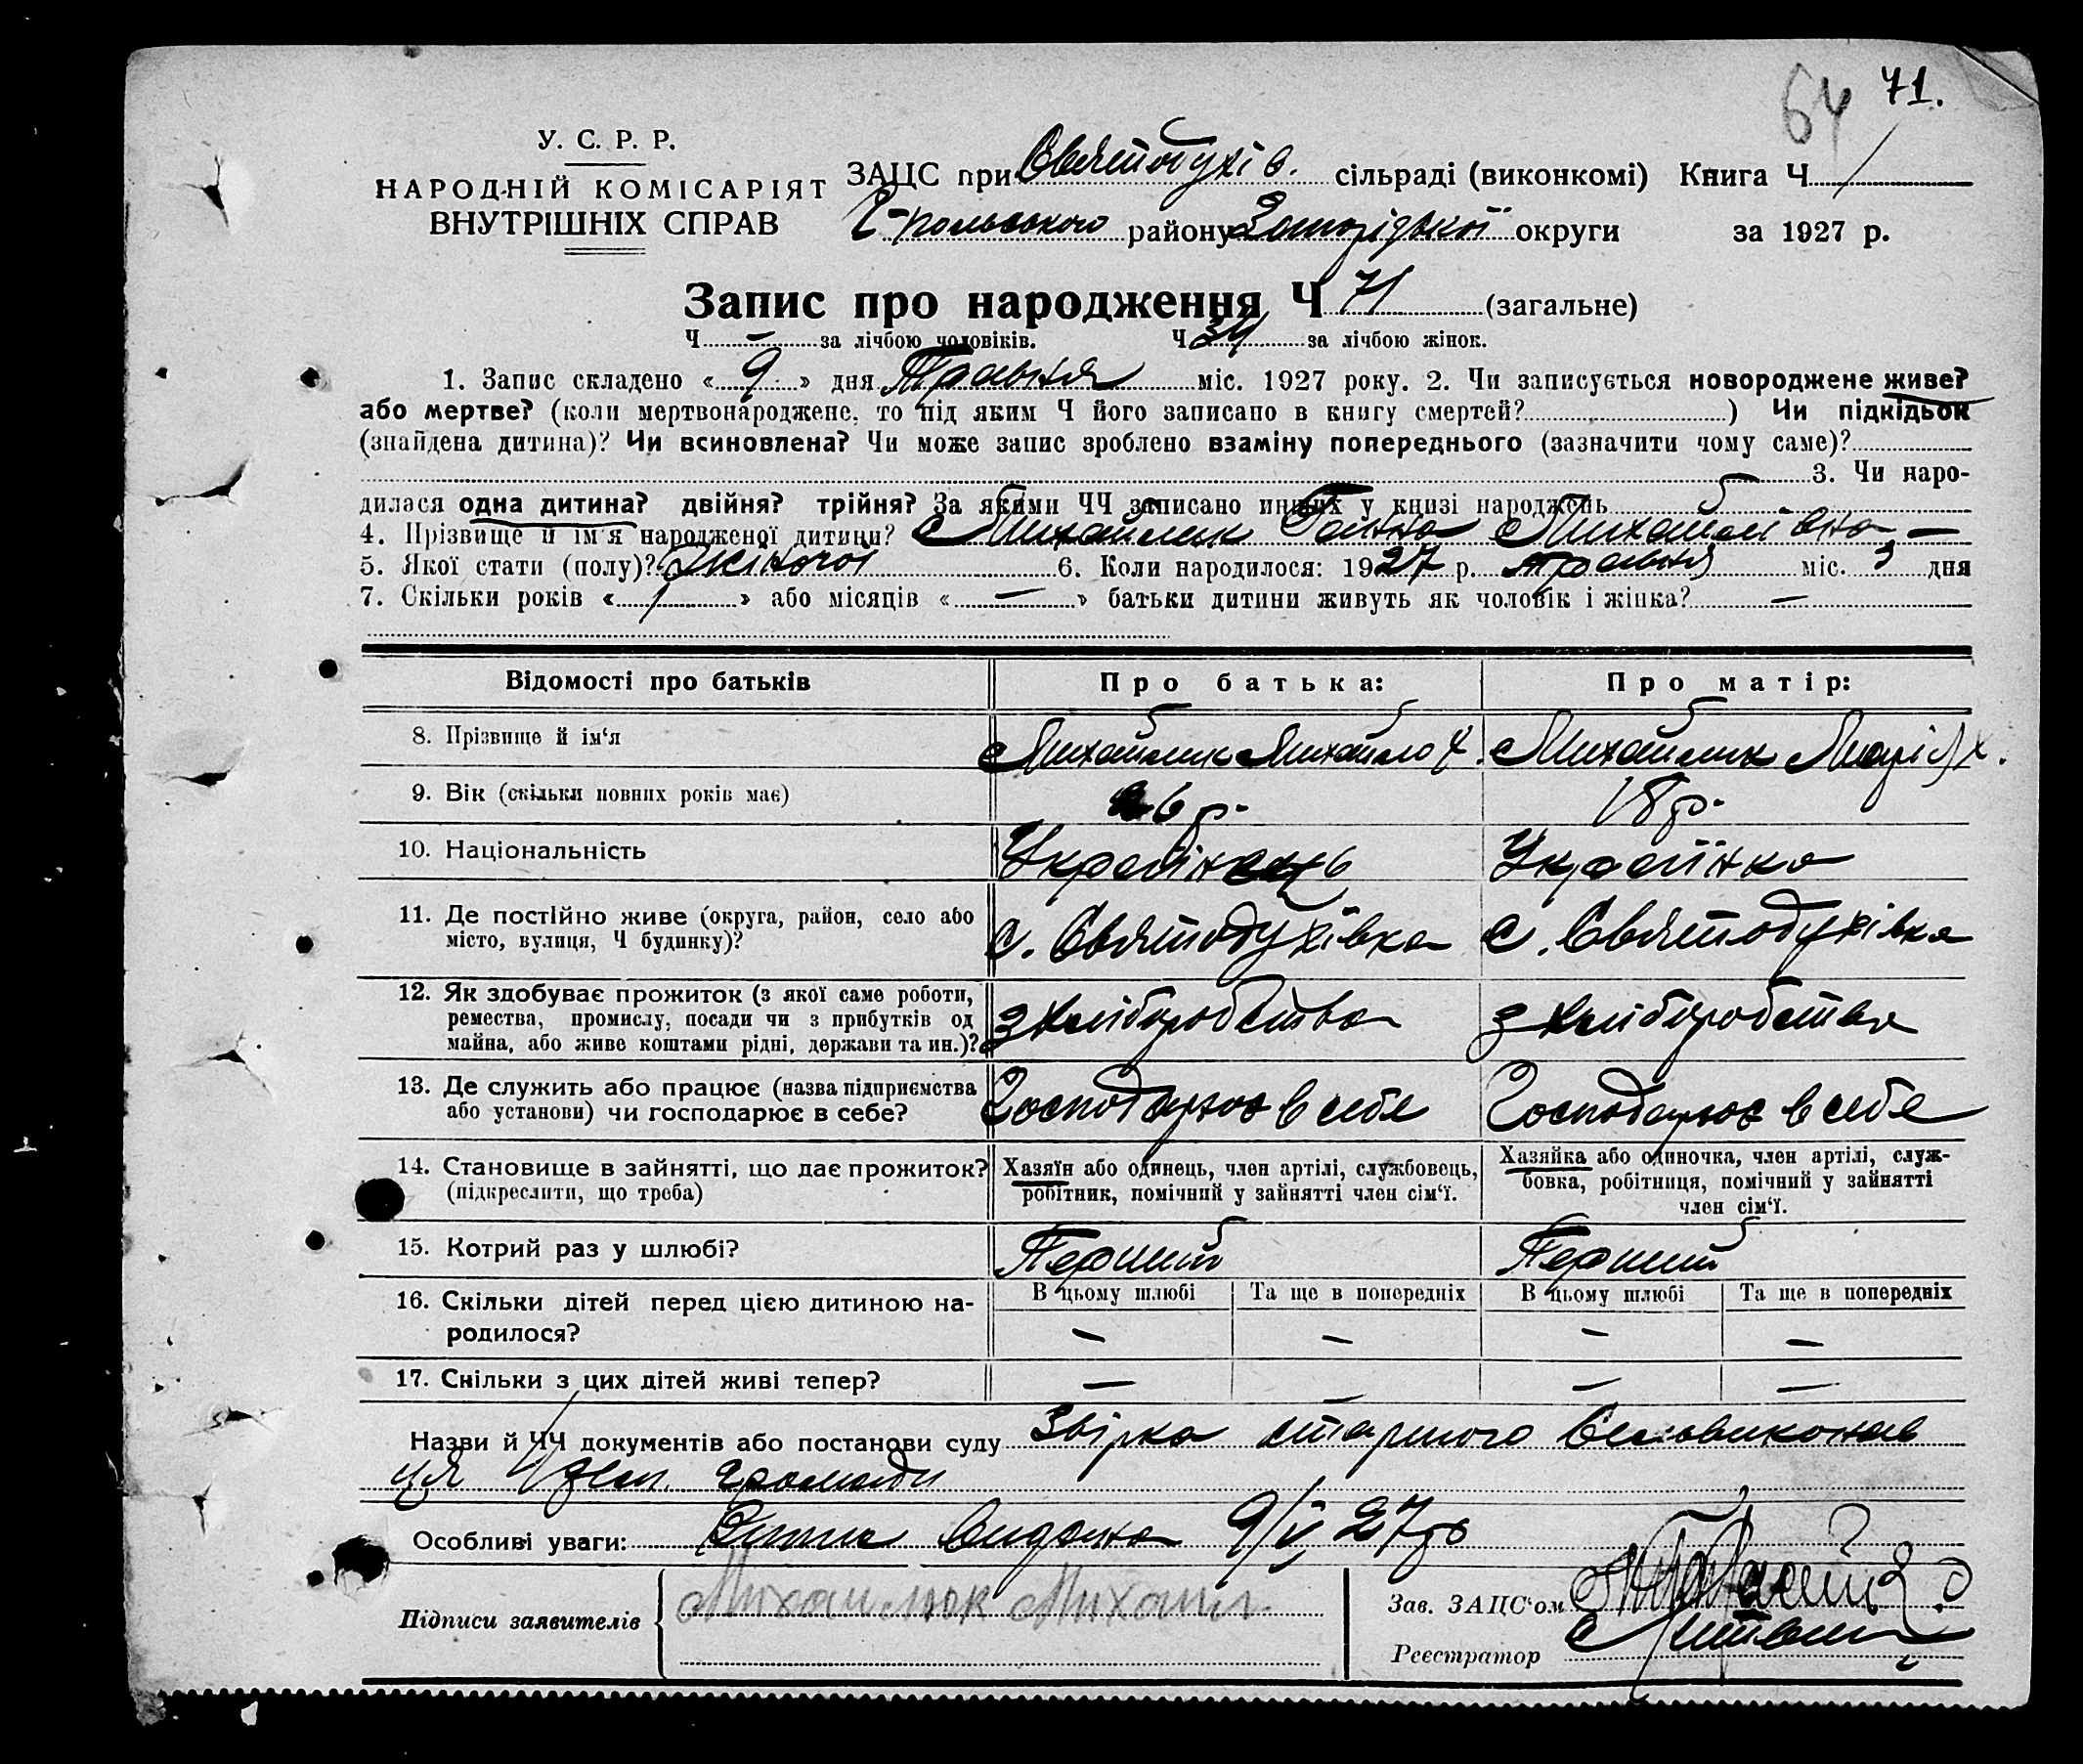 64 71.
У. С. Р. Р.
НАРОДНІЙ КОМІСАРІЯТ
ВНУТРІШНІХ СПРАВ
ЗАЦС при Святодухів. сільраді (виконкомі) Книга Ч 1
Г-Польського району Запорізької округи за 1927 р.
Запис про народження Ч 71 (загальне)
Ч — за лічбою чоловіків. Ч 34 за лічбою жінок.
1. Запис складено « 9 » дня Травня міс. 1927 року. 2. Чи записується новороджене живе?
або мертве? (коли мертвонароджене, то під яким Ч його записано в книгу смертей? ) Чи підкідьок
(знайдена дитина)? Чи всиновлена? Чи може запис зроблено взаміну попереднього (зазначити чому саме)?
3. Чи наро-
дилася одна дитина? двійня? трійня? За якими ЧЧ записано инших у книзі народжень
4. Прізвище й ім'я народженої дитини? Михайлик Ганна Михайлівна —
5. Якої стати (полу)? Жіночої 6. Коли народилося: 1927 р. травня міс. 3 дня
7. Скільки років « 1 » або місяців « — » батьки дитини живуть як чоловік і жінка? —
Відомості про батьків Про батька: Про матір:
8. Прізвище й ім'я Михайлик Михайло Х. Михайлик Марія Х.
9. Вік (скільки повних років має) 26 р. 18 р.
10. Національність Українець Українка
11. Де постійно живе (округа, район, село або
місто, вулиця, Ч будинку)? с. Святодухівка с. Святодухівка
12. Як здобуває прожиток (з якої саме роботи,
ремества, промислу, посади чи з прибутків од
майна, або живе коштами рідні, держави та ин.)? З хліборобства З хліборобства
13. Де служить або працює (назва підприємства
або установи) чи господарює в себе? Господарює в себе Господарює в себе
14. Становище в зайнятті, що дає прожиток?
(підкреслити, що треба)
Хазяїн або одинець, член артілі, службовець,
робітник, помічний у зайнятті член сім'ї.
Хазяйка або одиночка, член артілі, служ-
бовка, робітниця, помічний у зайнятті
член сім'ї.
15. Котрий раз у шлюбі? Перший Перший
16. Скільки дітей перед цією дитиною на-
родилося?
В цьому шлюбі Та ще в попередніх В цьому шлюбі Та ще в попередніх
— — — —
17. Скільки з цих дітей живі тепер? — — — —
Назви й ЧЧ документів або постанови суду Звірка старшого Сельвиконав
ця зем. громади
Особливі уваги: Витяг видана 9/V 27 р
Підписи заявителів Михайлюк Михаил
Зав. ЗАЦС'ом
Реєстратор Литвин